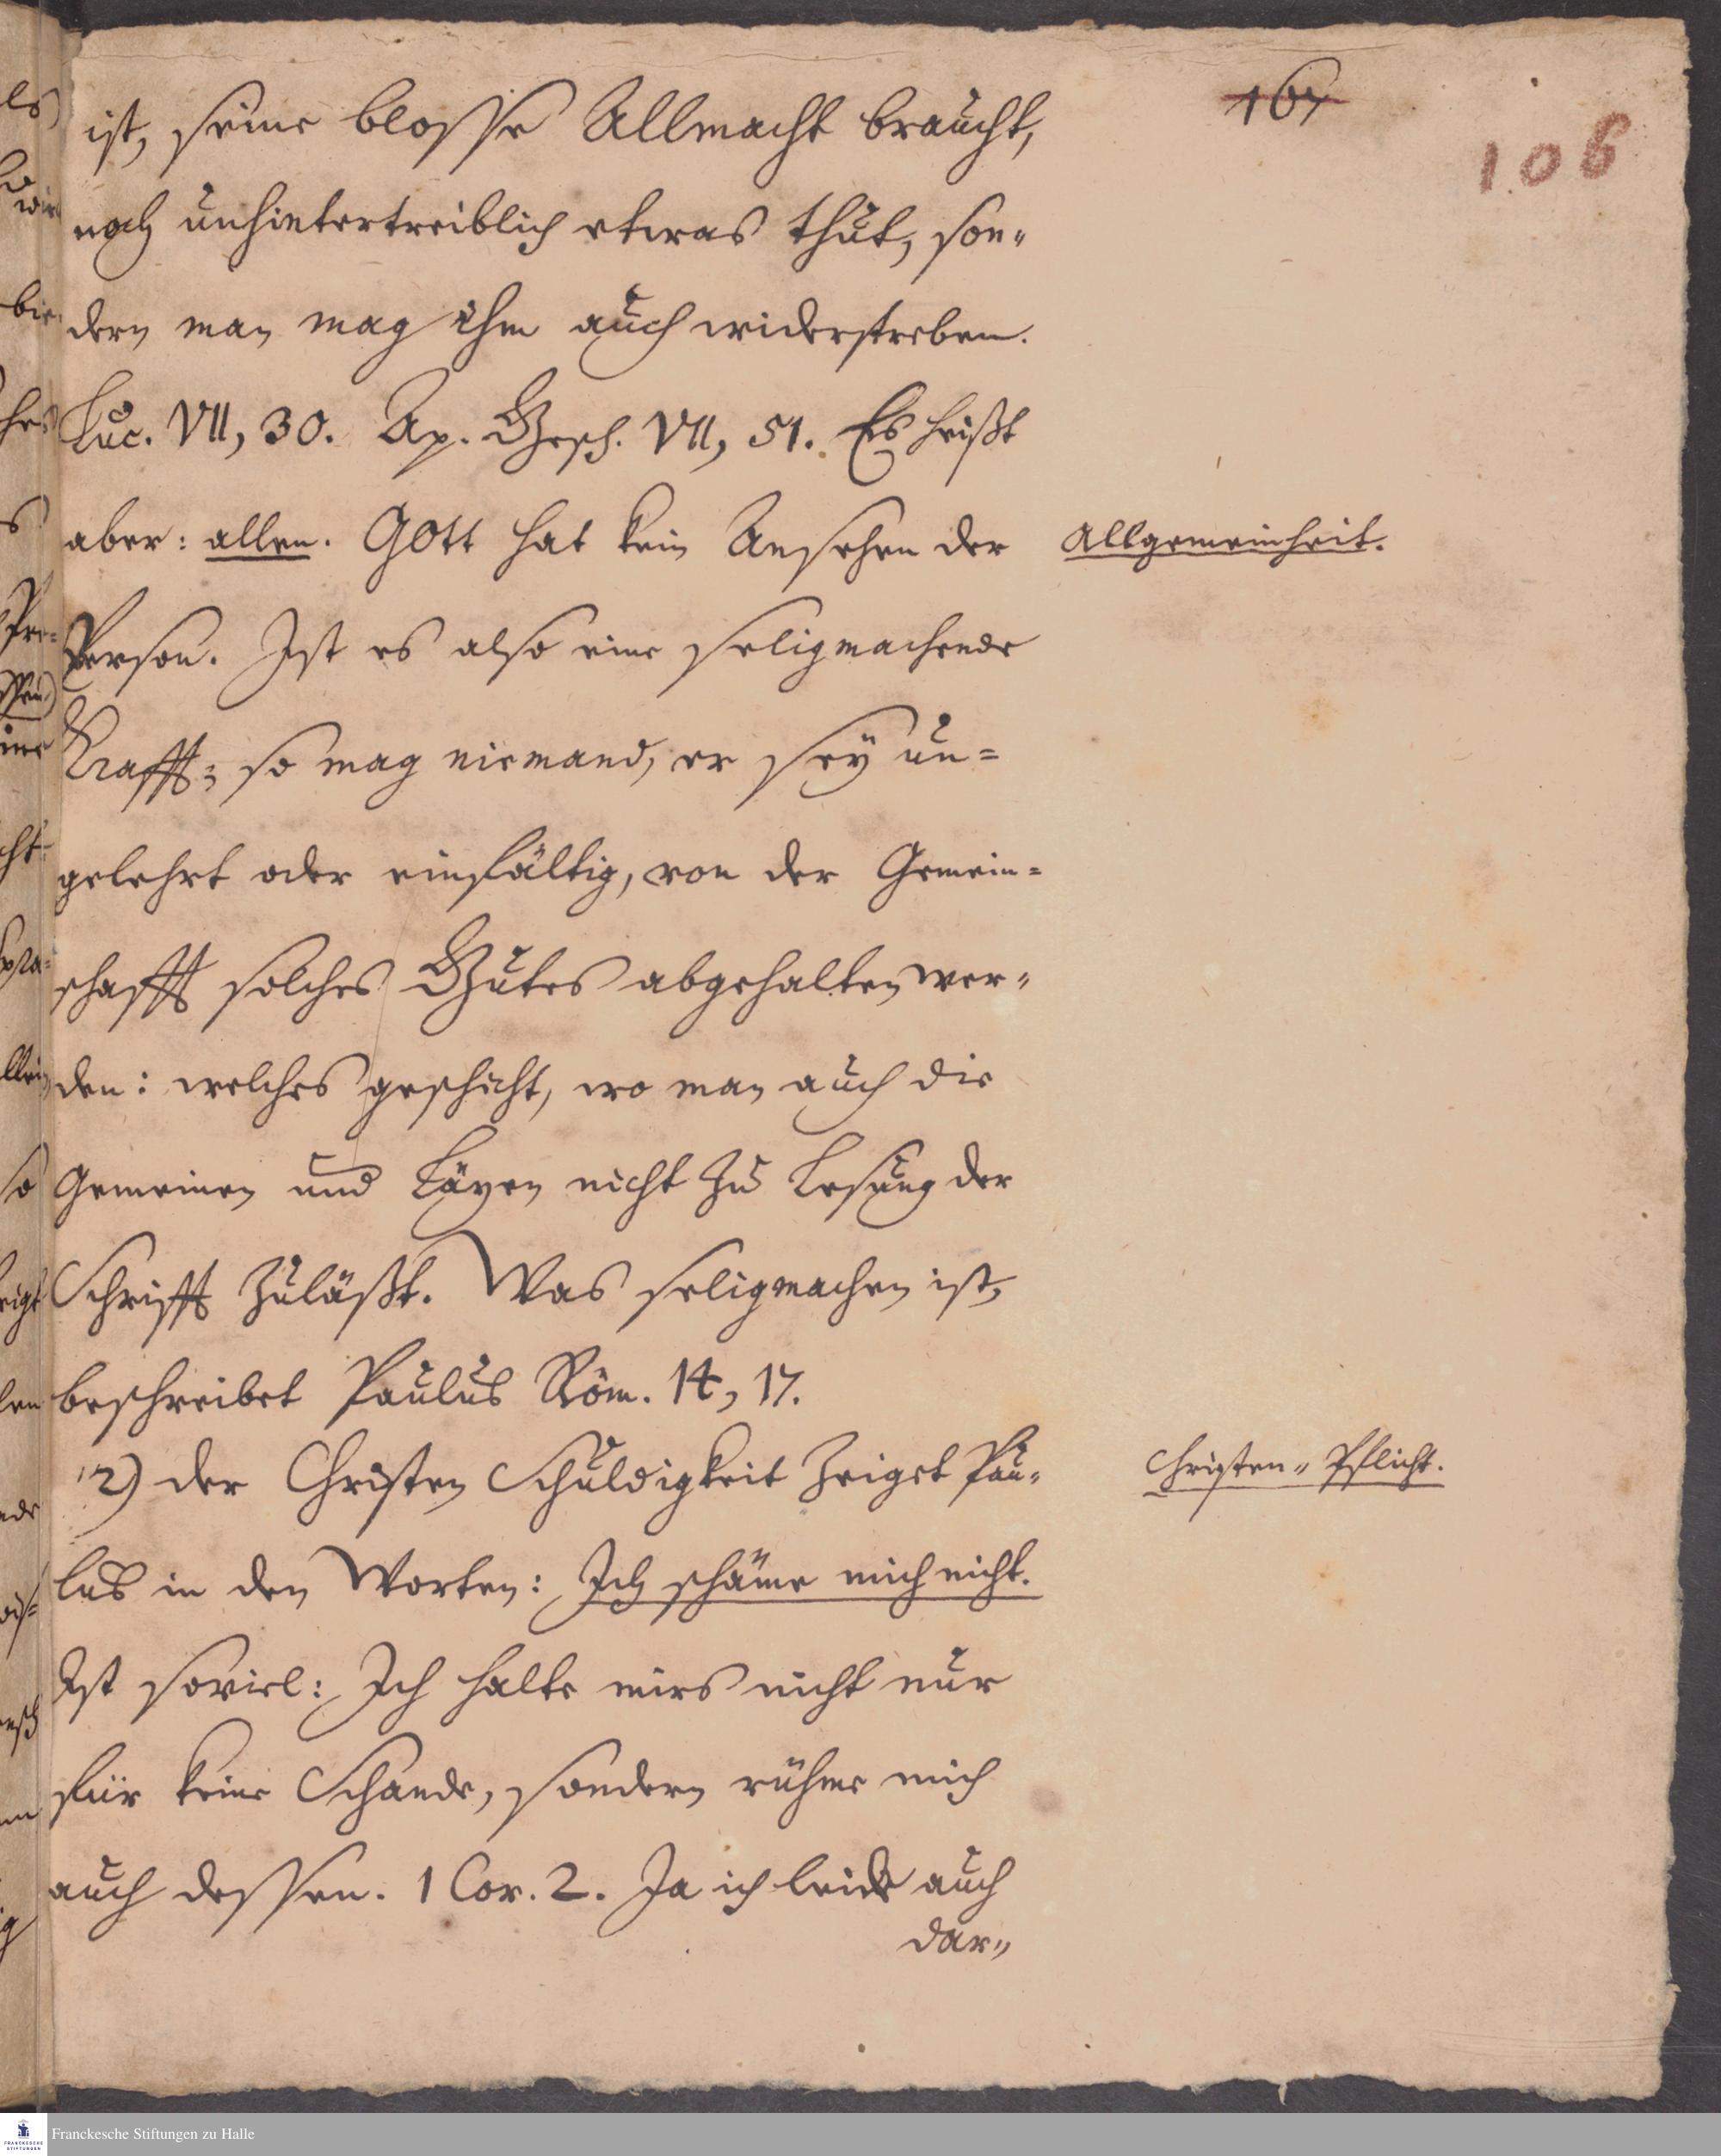 167
106
ist, seine blosse Allmacht braucht,
noch unhintertreiblich etwas thut, son-
dern man mag ihm auch widerstreben.
Luc. VII, 30. Ap. Gesch. VII, 51. Es heißt
aber: allen. GOtt hat kein Ansehen der
Allgemeinheit.
Person. Ist es also eine seligmachende
Krafft; so mag niemand, er sey un=
gelehrt oder einfältig, von der Gemein=
schafft solches Gutes abgehalten wer-
den: welches geschicht, wo man auch die
Gemeinen und Läyen nicht zu Lesung der
Schrifft zuläßt. Was seligmachen ist,
beschreibet Paulus Röm. 14, 17.
2) der Christen Schuldigkeit zeiget Pau-
Christen-Pflicht.
lus in den Worten: Ich schäme mich nicht.
Ist soviel: Ich halte mirs nicht nur
für keine Schande, sondern rühme mich
auch dessen. 1 Cor. 2. Ja ich leide auch
dar-
Franckesche Stiftungen zu Halle